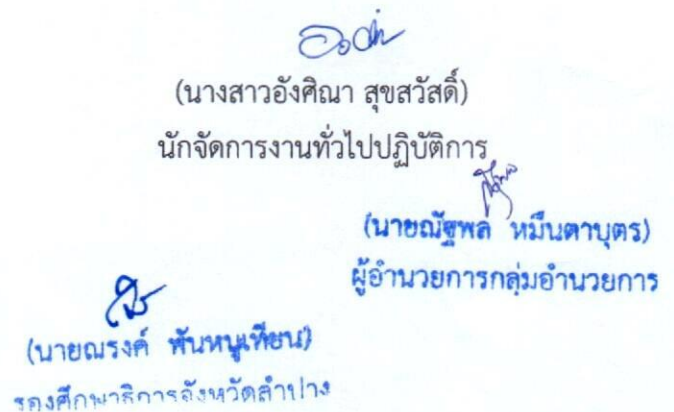 (นางสาวอังศิณา สุขสวัสดิ์)
นักจัดการงานทั่วไปปฏิบัติการ
(นายณัฐพล หมื่นตาบุตร)
ผู้อำนวยการกลุ่มอำนวยการ
(นายณรงค์ พันหนูเทียน)
รองศึกษาธิการจังหวัดลำปาง